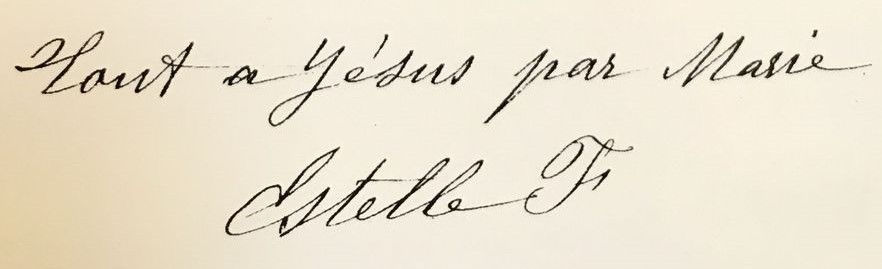 Tout a Jésus par Marie
Estelle F